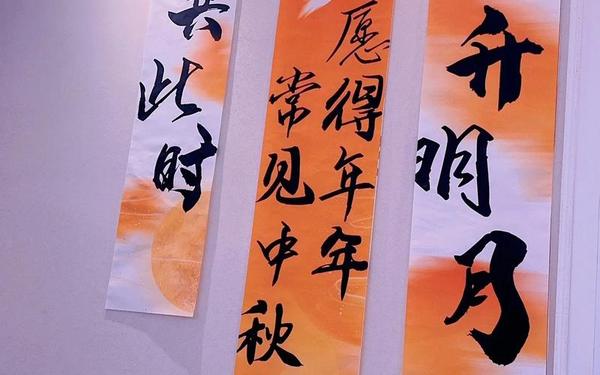 升明月
愿得年年
常见中秋
共此时